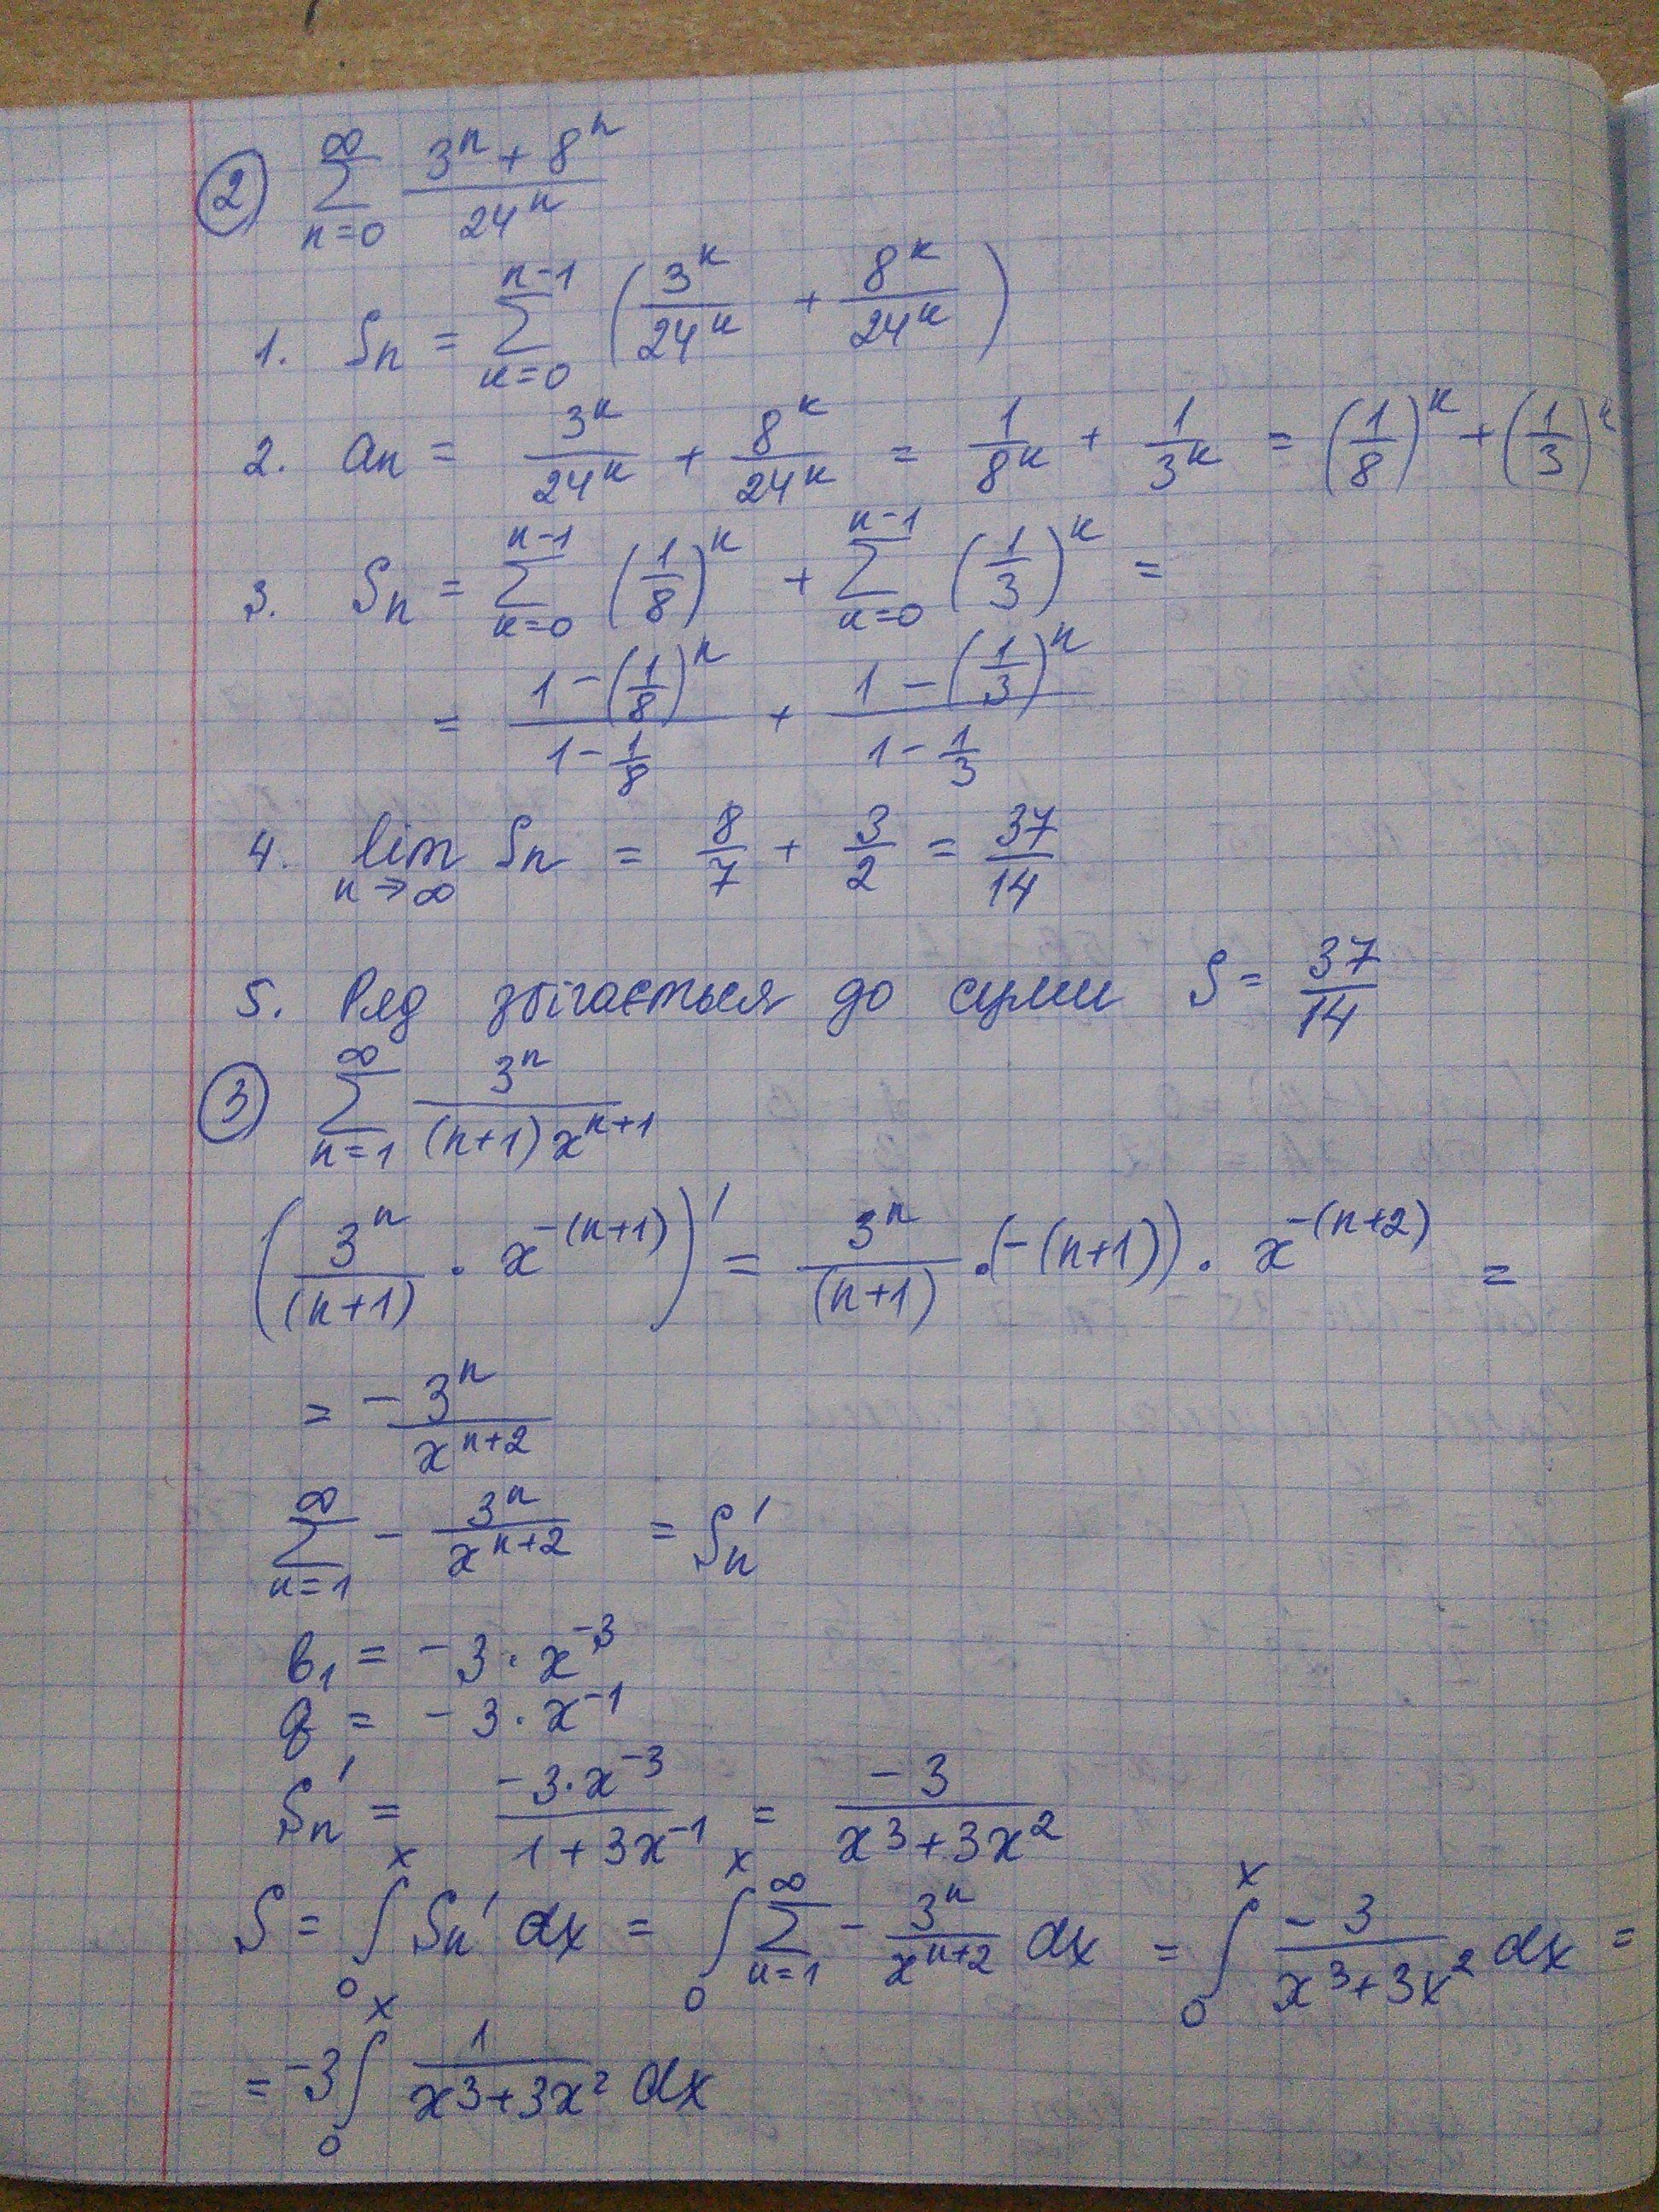 ② ∞∑n=0 (3ⁿ + 8ⁿ)/24ⁿ
1. Sn = n-1∑k=0 (3ᵏ/24ᵏ + 8ᵏ/24ᵏ)
2. an = 3ᵏ/24ᵏ + 8ᵏ/24ᵏ = 1/8ᵏ + 1/3ᵏ = (1/8)ᵏ + (1/3)ᵏ
3. Sn = n-1∑k=0 (1/8)ᵏ + n-1∑k=0 (1/3)ᵏ =
= (1-(1/8)ⁿ)/(1-1/8) + (1-(1/3)ⁿ)/(1-1/3)
4. lim n→∞ Sn = 8/7 + 3/2 = 37/14
5. Ряд збігається до суми S = 37/14
③ ∞∑n=1 3ⁿ/((n+1)xⁿ⁺¹)
(3ⁿ/(n+1) · x^-(n+1))' = 3ⁿ/(n+1) · (-(n+1)) · x^-(n+2) =
= -3ⁿ/xⁿ⁺²
∞∑n=1 - 3ⁿ/xⁿ⁺² = Sn'
b₁ = -3·x⁻³
q = -3·x⁻¹
Sn' = (-3·x⁻³)/(1+3x⁻¹) = -3/(x³+3x²)
S = ∫₀ˣ Sn' dx = ∫₀ˣ ∞∑n=1 - 3ⁿ/xⁿ⁺² dx = ∫₀ˣ -3/(x³+3x²) dx =
= -3∫₀ˣ 1/(x³+3x²) dx